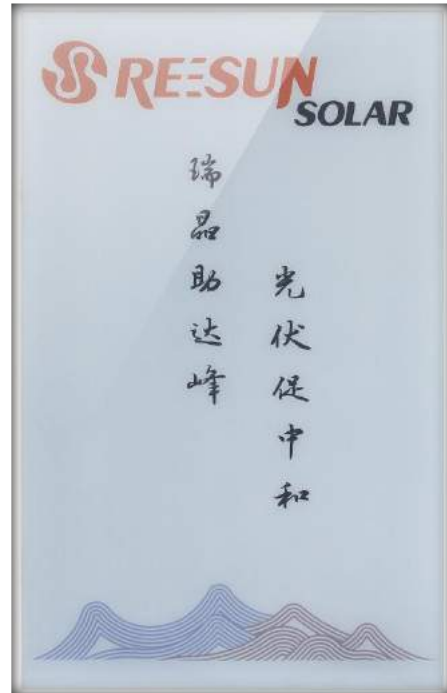 RE=SUN
SOLAR
光伏促中和
瑞晶助达峰